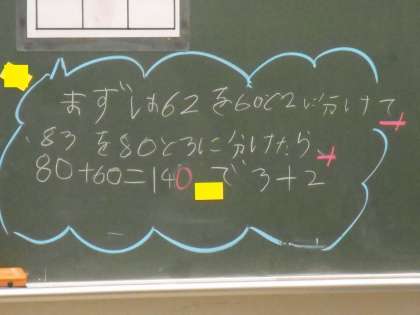 まずは62を60と2に分けて
83を80と3に分けたら、
80+60=140で3+2